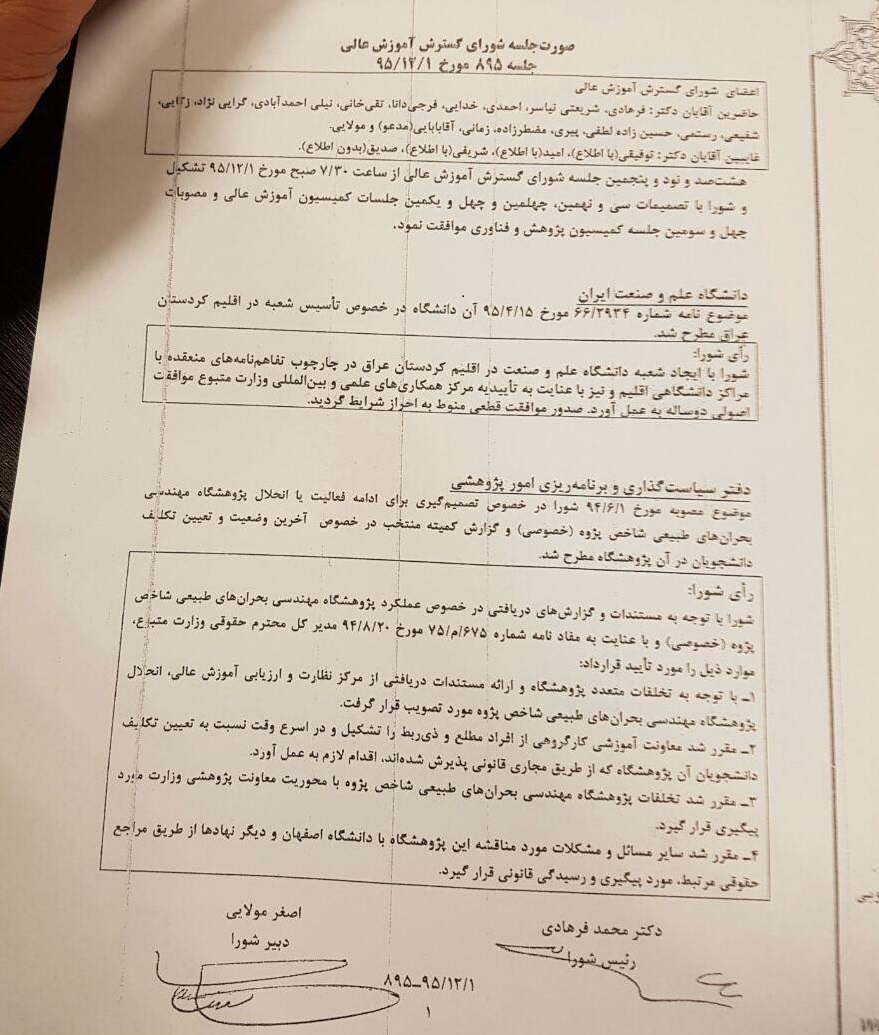 صورت‌جلسه شورای گسترش آموزش عالی
جلسه ۸۹۵ مورخ ۹۵/۱۲/۱
اعضای شورای گسترش آموزش عالی
حاضرین آقایان دکتر: فرهادی، شریعتی نیاسر، احمدی، خدایی، فرجی‌دانا، تقی‌خانی، نیلی احمدآبادی، گرایی نژاد، زکایی،
شفیعی، رستمی، حسین زاده لطفی، پیری، مفطرزاده، زمانی، آقابابایی(مدعو) و مولایی.
غایبین آقایان دکتر: توفیقی(با اطلاع)، امید(با اطلاع)، شریفی(با اطلاع)، صدیق(بدون اطلاع).
هشت‌صد و نود و پنجمین جلسه شورای گسترش آموزش عالی از ساعت ۷/۳۰ صبح مورخ ۹۵/۱۲/۱ تشکیل
و شورا با تصمیمات سی و نهمین، چهلمین و چهل و یکمین جلسات کمیسیون آموزش عالی و مصوبات
چهل و سومین جلسه کمیسیون پژوهش و فناوری موافقت نمود.
دانشگاه علم و صنعت ایران
موضوع نامه شماره ۶۶/۲۹۳۴ مورخ ۹۵/۴/۱۵ آن دانشگاه در خصوص تأسیس شعبه در اقلیم کردستان
عراق مطرح شد.
رأی شورا:
شورا با ایجاد شعبه دانشگاه علم و صنعت در اقلیم کردستان عراق در چارچوب تفاهم‌نامه‌های منعقده با
مراکز دانشگاهی اقلیم و نیز با عنایت به تأییدیه مرکز همکاری‌های علمی و بین‌المللی وزارت متبوع موافقت
اصولی دوساله به عمل آورد. صدور موافقت قطعی منوط به احراز شرایط گردید.
دفتر سیاست‌گذاری و برنامه‌ریزی امور پژوهشی
موضوع مصوبه مورخ ۹۴/۶/۱ شورا در خصوص تصمیم‌گیری برای ادامه فعالیت یا انحلال پژوهشگاه مهندسی
بحران‌های طبیعی شاخص پژوه (خصوصی) و گزارش کمیته منتخب در خصوص آخرین وضعیت و تعیین تکلیف
دانشجویان در آن پژوهشگاه مطرح شد.
رأی شورا:
شورا با توجه به مستندات و گزارش‌های دریافتی در خصوص عملکرد پژوهشگاه مهندسی بحران‌های طبیعی شاخص
پژوه (خصوصی) و با عنایت به مفاد نامه شماره ۷۵/م/۶۷۵ مورخ ۹۴/۸/۲۰ مدیر کل محترم حقوقی وزارت متبوع،
موارد ذیل را مورد تأیید قرارداد:
۱ـ با توجه به تخلفات متعدد پژوهشگاه و ارائه مستندات دریافتی از مرکز نظارت و ارزیابی آموزش عالی، انحلال
پژوهشگاه مهندسی بحران‌های طبیعی شاخص پژوه مورد تصویب قرار گرفت.
۲ـ مقرر شد معاونت آموزشی کارگروهی از افراد مطلع و ذی‌ربط را تشکیل و در اسرع وقت نسبت به تعیین تکلیف
دانشجویان آن پژوهشگاه که از طریق مجاری قانونی پذیرش شده‌اند، اقدام لازم به عمل آورد.
۳ـ مقرر شد تخلفات پژوهشگاه مهندسی بحران‌های طبیعی شاخص پژوه با محوریت معاونت پژوهشی وزارت مورد
پیگیری قرار گیرد.
۴ـ مقرر شد سایر مسائل و مشکلات مورد مناقشه این پژوهشگاه با دانشگاه اصفهان و دیگر نهادها از طریق مراجع
حقوقی مرتبط، مورد پیگیری و رسیدگی قانونی قرار گیرد.
دکتر محمد فرهادی
رئیس شورا
اصغر مولایی
دبیر شورا
۸۹۵ـ۹۵/۱۲/۱
۱